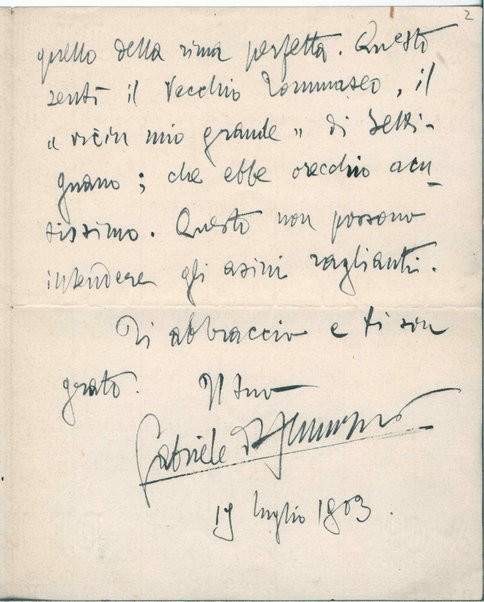 2
quello della rima perfetta. Questo
sentì il vecchio Tommaseo, il
"vicin mio grande" di Setti-
gnano; che ebbe orecchio acu-
tissimo. Questo non possono
intendere gli asini raglianti.
Ti abbraccio e ti son
grato. Il tuo
Gabriele D'Annunzio
19 luglio 1903.